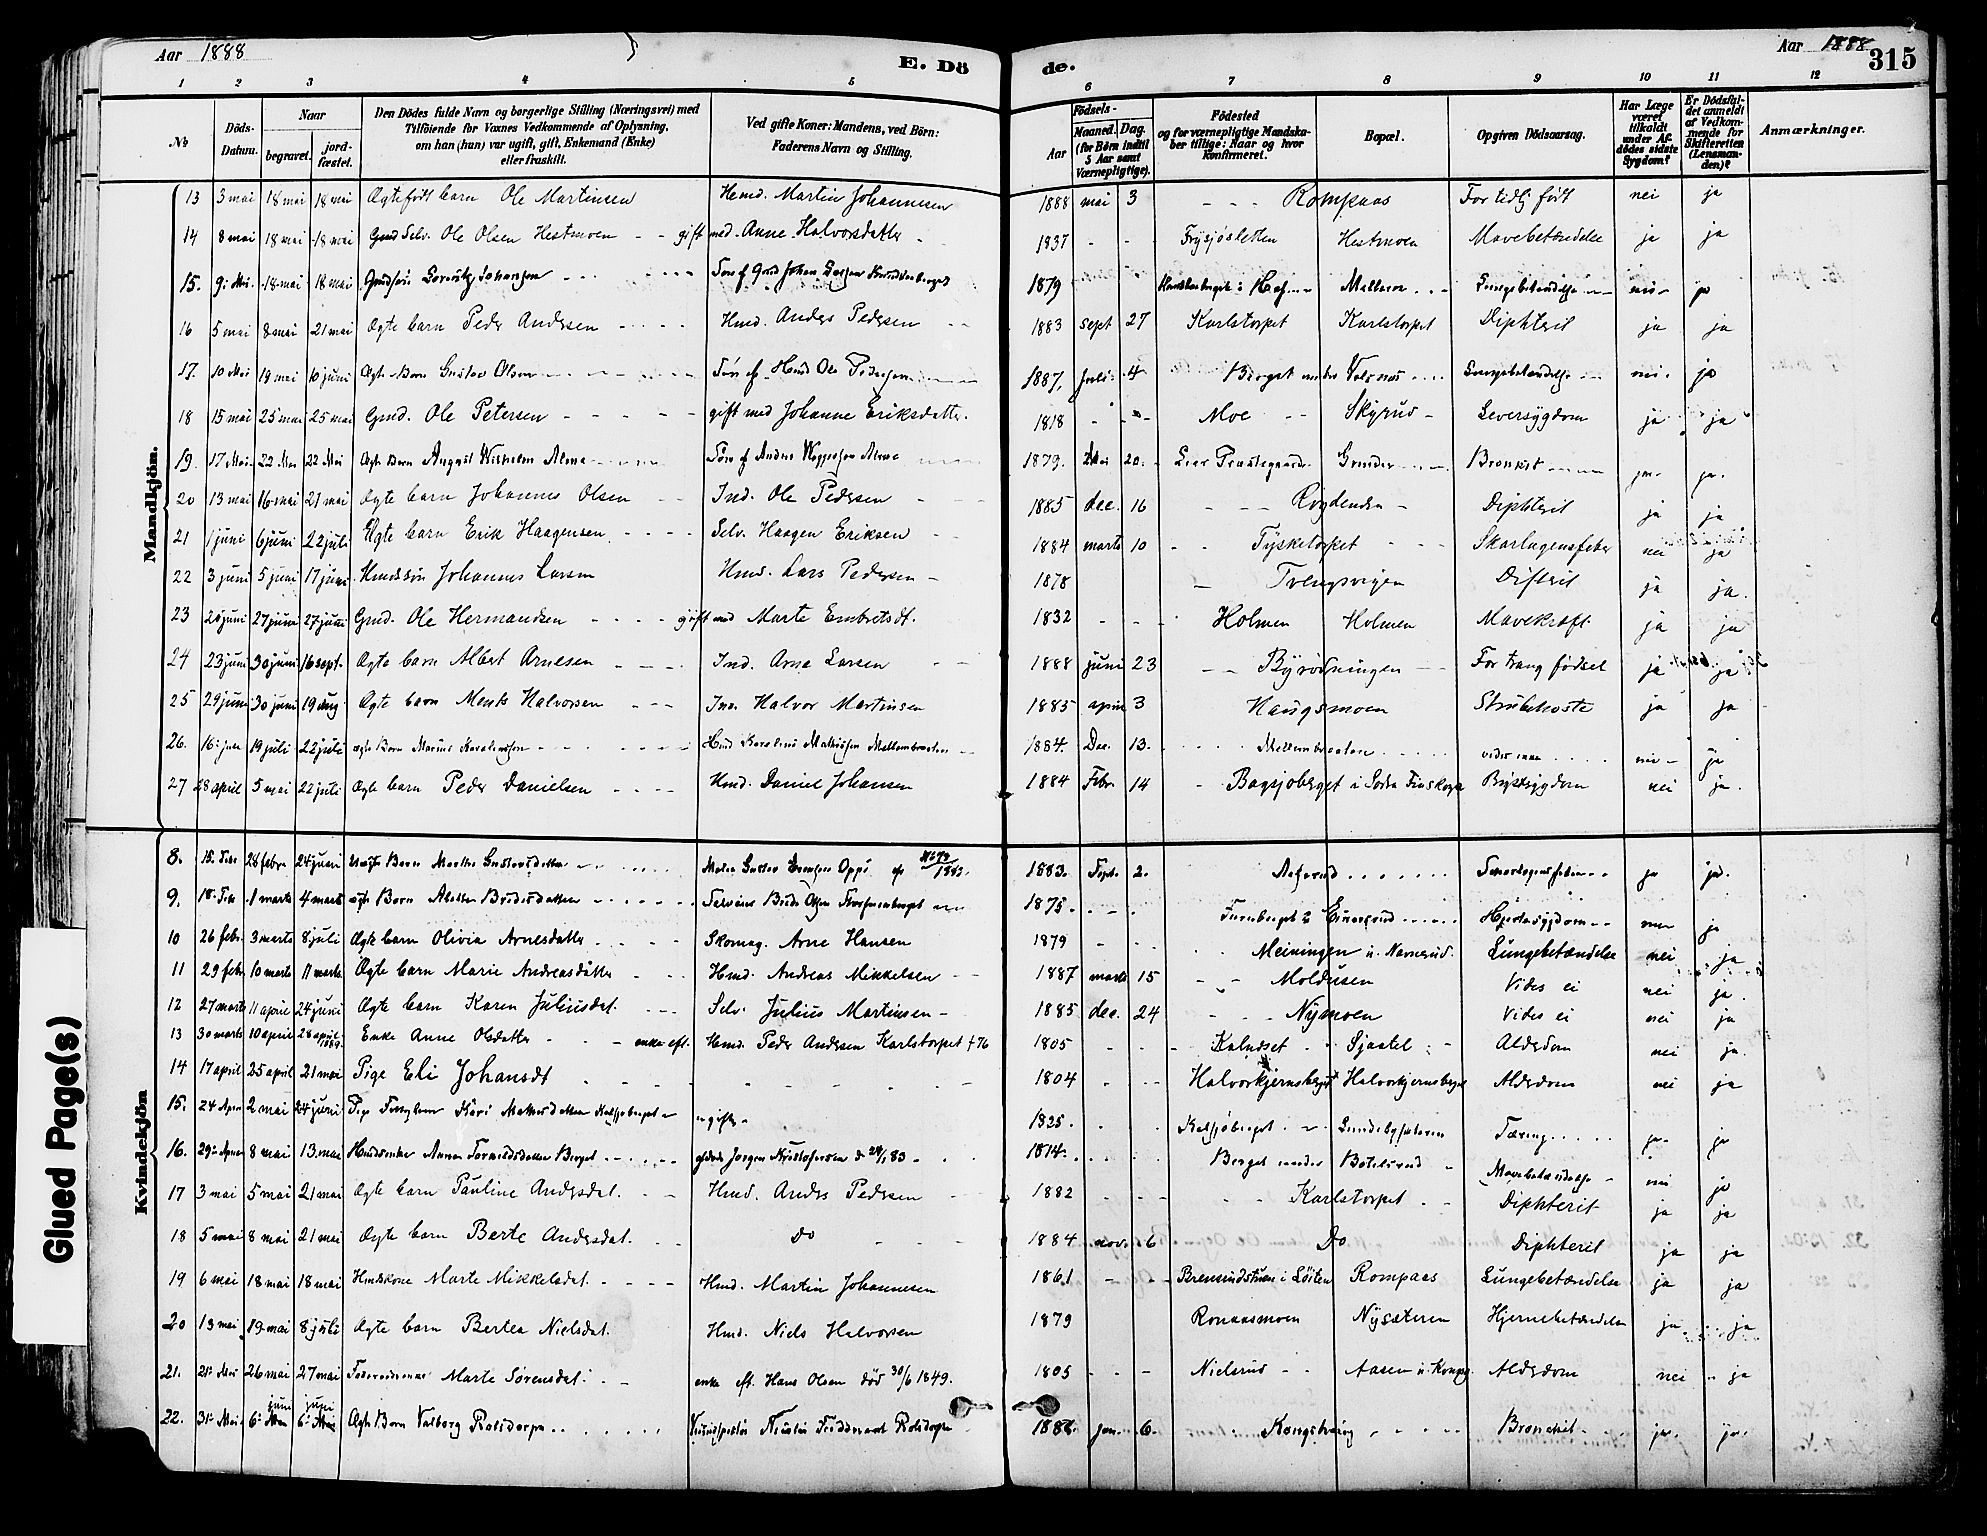 Aar 1888
E. Dö
de.
Aar 1888
315
1 2 3 4 5 6 7 8 9 10 11 12
No
Döds-Datum.
Naar begravet. jordfæstet.
Den Dödes fulde Navn og borgerlige Stilling (Næringsvei) med Tilföiende for Voxnes Vedkommende af Oplysning, om han (hun) var ugift, gift, Enkemand (Enke) eller fraskilt.
Ved gifte Koner: Mandens, ved Börn: Faderens Navn og Stilling.
Födsels- Aar Maaned. Dag. (for Börn indtil 5 Aar samt Værnepligtige).
Födested og for værnepligtige Mandskaber tillige: Naar og hvor konfirmeret.
Bopæl.
Opgiven Dödsaarsag.
Har Læge været tilkaldt under Afdödes sidste Sygdom?
Er Dödsfaldet anmeldt af Vedkommende for Skifteretten (Lensmanden)?
Anmærkninger.
Mandkjön.
13 3 mai 18 mai 18 mai Ægtefödt barn Ole Martinsen Hmd. Martin Johannesen 1888 mai 3 Rompaas For tidlig födt nei ja
14 8 mai 18 mai 18 mai Gmd Selv. Ole Olsen Hestmoen gift med Anne Halvorsdatter 1837 Frysjösletten Hestmoen Mavebetændelse ja ja
15. 9. Mai 18 mai 18 mai Gmdsön Lorentz Johansen Sön af Gmd Johan 1879 Lungebetændelse nei ja
16 5 mai 8 mai 21 mai Ægte barn Peder Andersen Hmd. Anders Pedersen 1883 sept 27 Karlstorpet Karlstorpet Diphterit ja ja
17. 10 Mai 19 mai 10 juni Ægte Barn Gustav Olsen Sön af Hmd Ole Pedersen 1887. Juli 4 Berget under Lungebetændelse nei. ja
18 15 mai 25 mai 25 mai Gmd. Ole Petersen gift med Johanne Eriksdatter. 1818 Moe Skyrud Leversygdom ja ja
19. 17 Mai 22 Mai 22 Mai Ægte Barn August Wilhelm Alme Sön af Anders Alme 1879. Mai 20. Grinder Bronkit ja. ja.
20 13 mai 16 mai 21 mai Ægte barn Johannes Olsen Ind. Ole Pedersen 1885 dec. 16 Rögdenden Diphterit ja ja
21 1 juni 6 juni 22 juli Ægte barn Erik Haagensen Selv. Haagen Eriksen 1884 marts 10 Tysketorpet Skarlagensfeber nei ja
22 3 juni 5 juni 17 juni Hmdssön Johannes Larsen Hmd. Lars Pedersen 1878 Tvengsvigen Difterit ja ja.
23 20 juni 27 juni 27 juni Gmd. Ole Hermandsen gift med Marte Embretsdt. 1832 Holmen Holmen Mavekræft ja ja
24 23 juni 30 juni 16 sept. Ægte barn Albert Arnesen Ind. Arne Larsen 1888 juni 23 Byrödningen For trang födsel ja ja
25 29 juni 30 juni 19 aug Ægte barn Halvorsen Ind. Halvor Martinsen 1885 april 3 Haugsmoen Strubehoste ja ja
26. 16 juli 19 juli 22 juli Ægte Barn Marius Karelinssen Hmd Karelius Mathisen Mellembraaten 1884. Dec. 13. Mellembraaten vides inne nei ja
27 28 april 5 mai 22 juli Ægte barn Peder Danielsen Hmd. Daniel Johansen 1884 Febr. 14 Bagsjöberget i Södra Finskoga Brystsygdom nei ja.
Kvindekjön
8. 15. Febr 28 febr 24 juni Barn Marthe Gustavsdatter Gustav Oppi 1883. Sept. 2. Skarlagensfeber ja ja.
9. 18. Febr 1 marts 4 marts Ægte Barn Bredesdatter 1875. Hjertesygdom ja
10 26 febr. 3 marts 8 juli Ægte barn Olivia Arnesdatter Skomag. Arne Hansen 1879 Meiningen u. Navnerud. Lungebetændelse nei ja
11 29 febr 10 marts 11 marts Ægte barn Marie Andreasdatter Hmd. Andreas Mikkelsen 1887 marts 15 Moldusen Vides ei nei ja.
12 27 marts 11 april 24 juni Ægte barn Karen Juliusdat. Selv. Julius Martinsen 1885 dec. 24 Nymoen Vides ei nei ja
13 30 marts 10 april 28 april 1889 Enke Anne Olsdatter enke eft. Hmd. Peder Andersen Karlstorpet † 76 1805 Kalneset Sjaatel Alderdom nei ja.
14 17 april 25 april 21 mai Pige Eli Johansdt 1804 Halvorkjernsberget Halvorkjernsberget Alderdom nei ja
15. 24 April 2 mai 24 juni Pige Kari ugift 1825. Kalsjöberget Lundebysæteren Tæring ja. ja
16. 29 April 8 mai 13. mai Hmdsenke Anne Berget Jørgen Kristofersen 1814. Berget under Mavebetændelse nei ja
17 3 mai 5 mai 21 mai Ægte barn Pauline Andersdat. Hmd. Anders Pedersen 1882 Karlstorpet Diphterit ja ja
18 5 mai 8 mai 21 mai Ægte barn Berte Andersdat. Do 1884 nov. 6 Do Diphterit ja ja
19 6 mai 18 mai 18 mai Hmdskone Marte Mikkelsdat. Hmd. Martin Johannesen 1861 Brensindstuen i Löiten Rompaas Lungebetændelse ja ja
20 13 mai 19 mai 8 juli Ægte barn Bertea Nielsdat. Hmd. Niels Halvorsen 1879 Ronaasmoen Nysæteren Hjernebetændelse ja ja
21. 21. Mai 26 mai 27 mai Marte Sörensdat. enke eft. Hans Olsen död 30/6 1849. 1805 Nielsrud Aasen u. Kongs. Alderdom nei ja
22. 31. Mai 6. juni 6. juni Ægte Barn Valborg Rolsdorph Ferdinand Rolsdorph 1888. Jan. 6. Kongsvinger Bronchit ja. ja.
Glued Page(s)